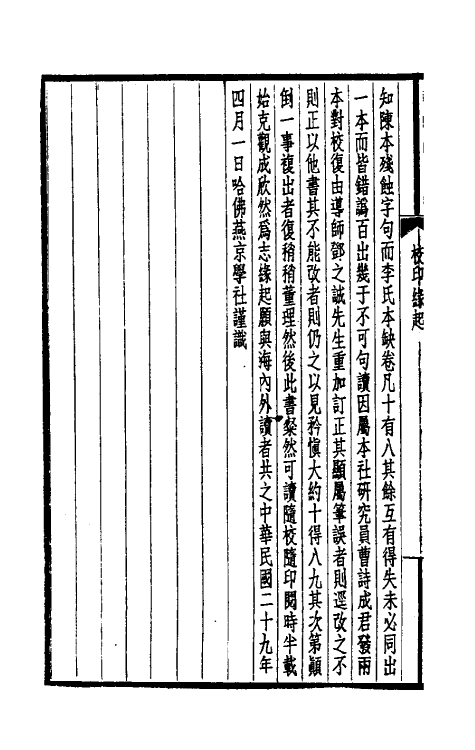 校印緣起
知陳本殘蝕字句而李氏本缺卷凡十有八其餘互有得失未必同出
一本而皆錯譌百出幾于不可句讀因屬本社研究員曹詩成君發兩
本對校復由導師鄧之誠先生重加訂正其顯屬筆誤者則逕改之不
則正以他書其不能改者則仍之以見矜慎大約十得八九其次第顚
倒一事複出者復稍稍董理然後此書粲然可讀隨校隨印閱時半載
始克觀成欣然爲志緣起願與海內外讀者共之中華民國二十九年
四月一日哈佛燕京學社謹識